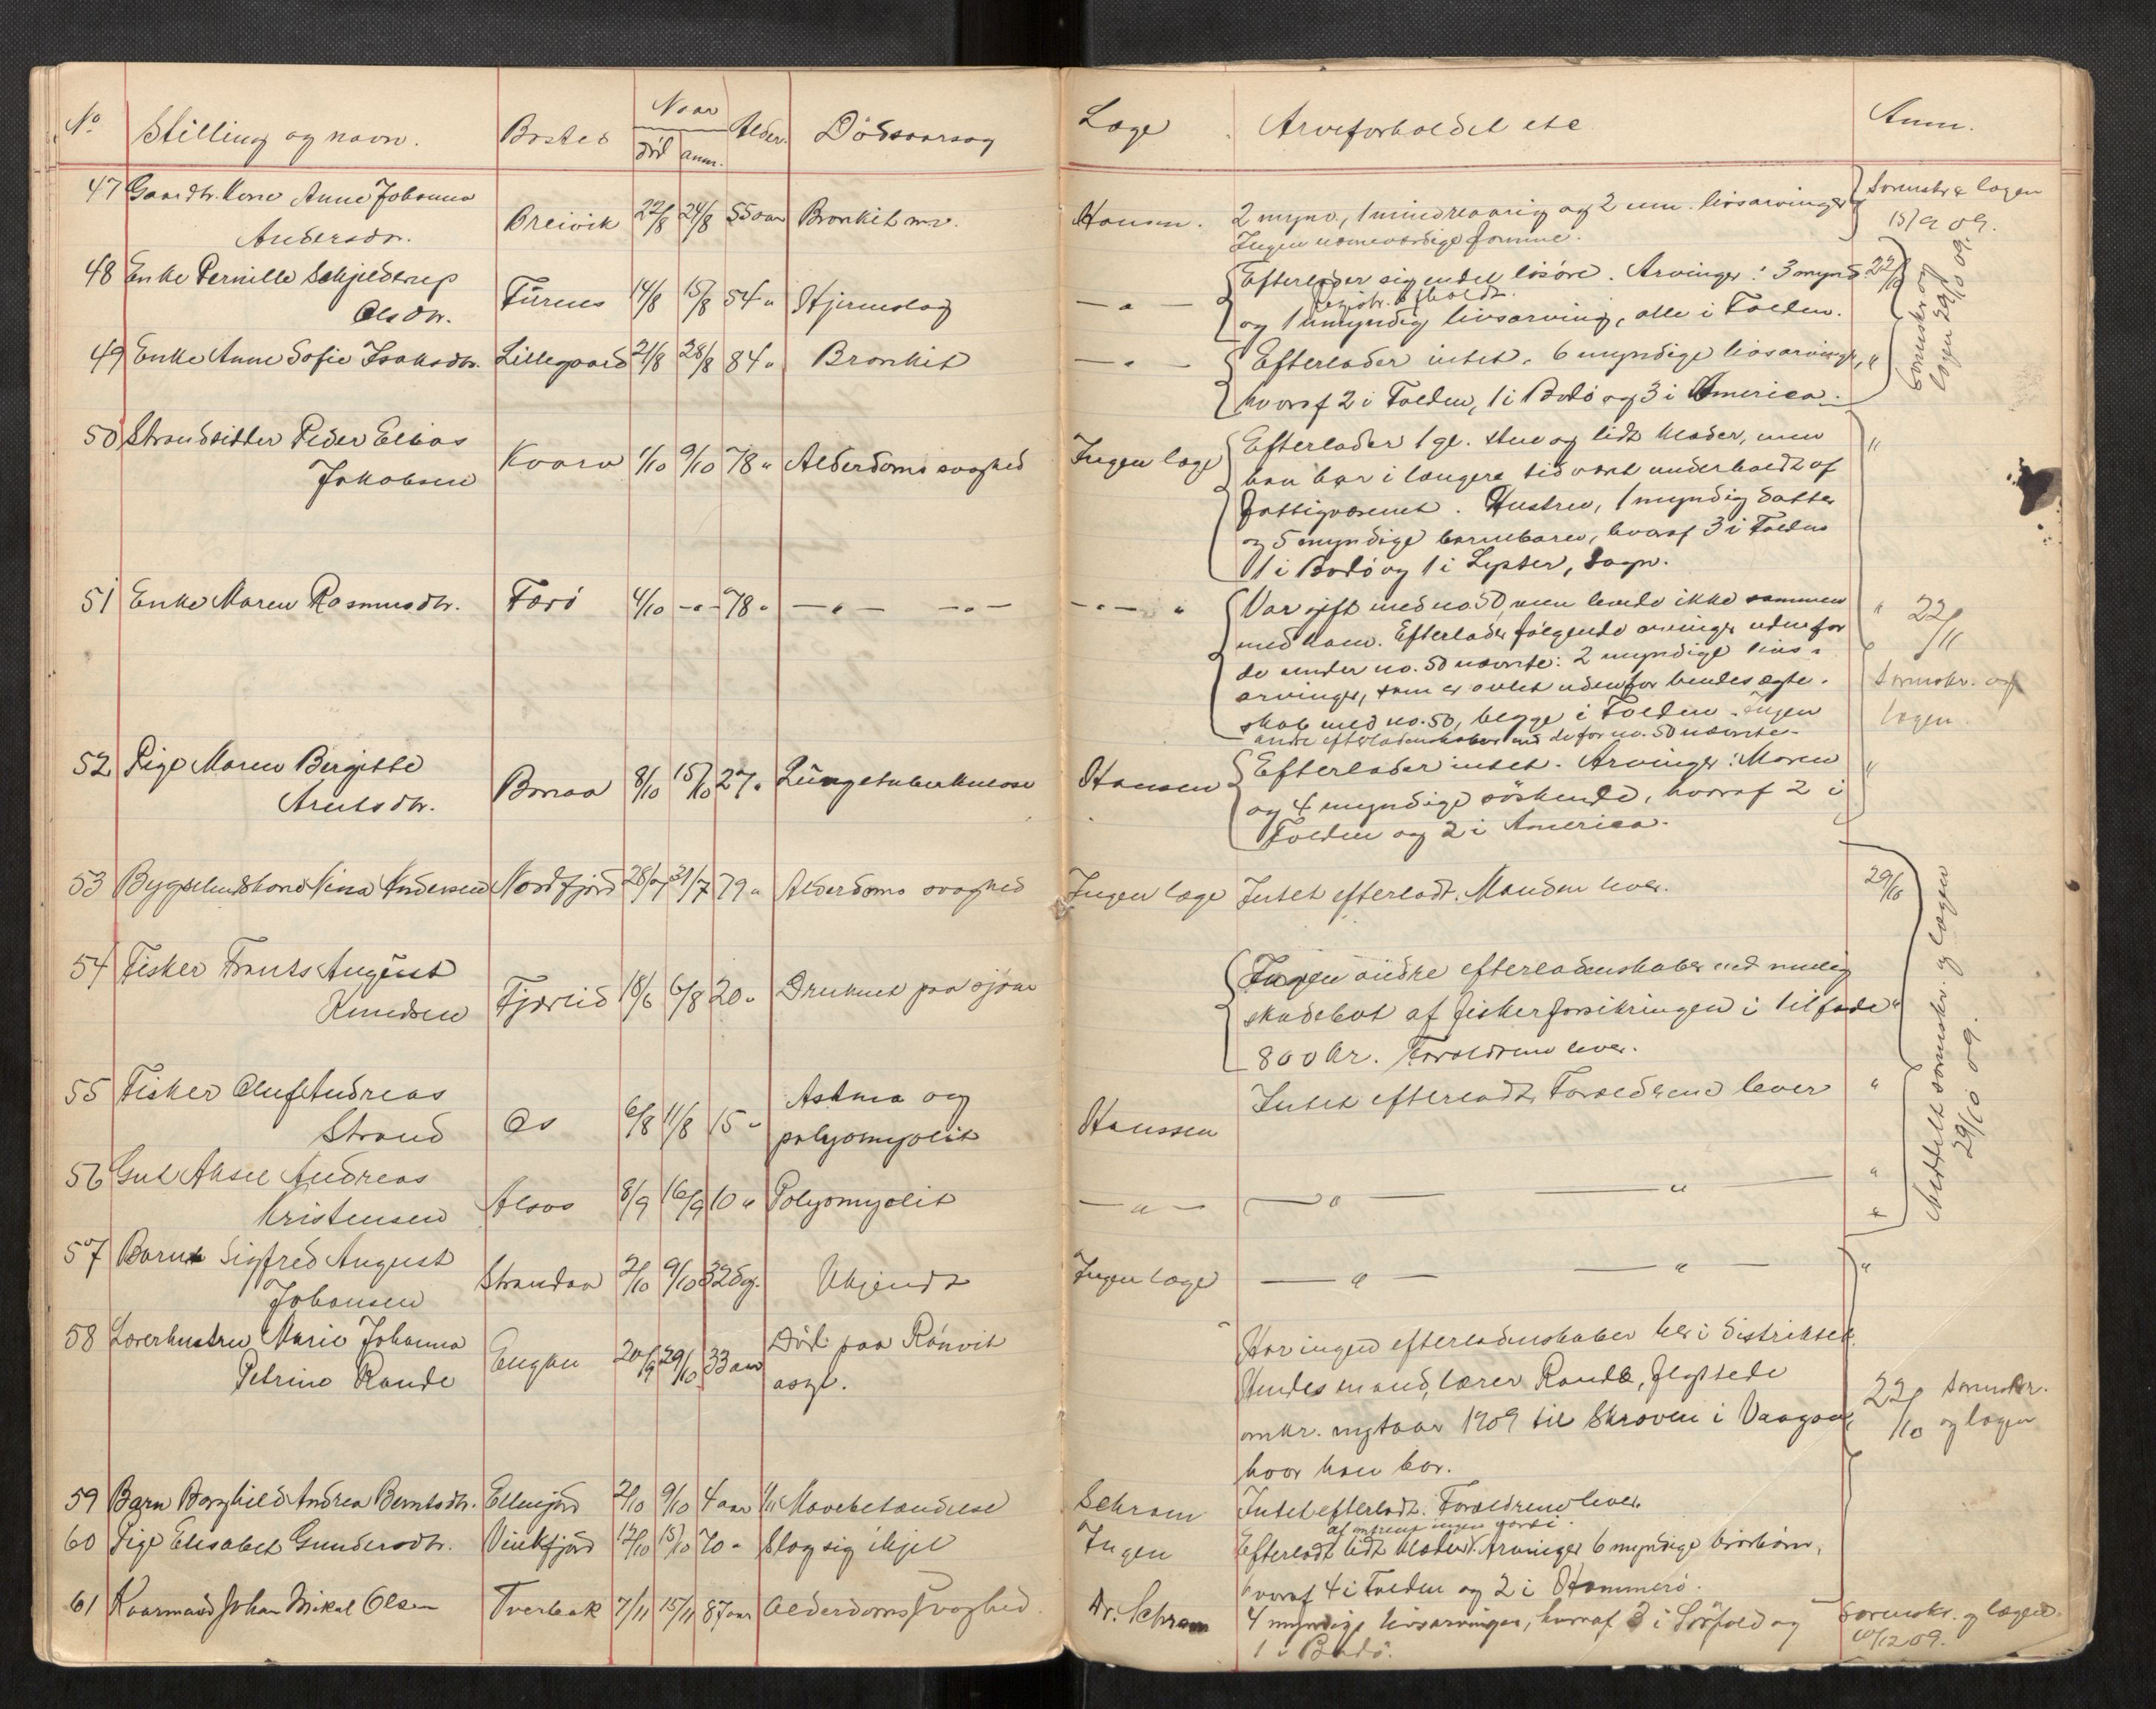 No Stilling og navn. Bosted Naar død anm. Alder. Dödsaarsag Læge Arveforholdet etc Anm.
47 Gaardbr. kone Anne Johanna Breivik 22/8 24/8 55 aar Bronkit m.v. Hansen. 2 mynd., 1 mindreaarig og 2 um. livsarvinger Sorenskr & lægen
Andersdtr. Ingen nævneværdige formue. 15/9 09.
48 Enke Pernille Schjelderup Fürnes 14/8 15/8 54 " Hjerneslag — " — Efterlader sig endel lösöre. Arvinger: 3 mynd 22/10
Olsdtr. og 1 umyndig livsarving, alle i Folden.
49 Enke Anne Sofie Isaksdtr. Lillegaard 21/8 28/8 84 " Bronkit — " — Efterlader intet. 6 myndige livsarvinger, "
hvoraf 2 i Folden, 1 i Bodö og 3 i America.
Sorenskr og lægen 29/10 09.
50 Strandsidder Peder Elias Kvarv 1/10 9/10 78 " Alderdoms svaghed Ingen læge Efterlader 1 gl. stue og lidt klæder, men "
Jakobsen han har i længere tid været underholdt af
fattigvæsenet. Hustru, 1 myndig datter
og 5 myndige barnebarn, hvoraf 3 i Folden
1 i Bodö og 1 i Lyster, Sogn.
51 Enke Maren Rasmusdtr. Færö 4/10 - " - 78 " — " — — " — — " — " Var gift med no. 50 men levede ikke sammen " 22/11
med ham. Efterlader fölgende arvinger udenfor
de under no. 50 nævnte: 2 myndige livs-
arvinger, som er avlet udenfor hendes ægte- Sorenskr. og
skab med no. 50, begge i Folden. Ingen lægen.
andre efterladenskaber end de for no. 50 nævnte.
52 Pige Maren Bergitte Bonaa 8/10 15/10 27 " Lüngetuberkulose Hansen Efterlader intet. Arvinger: Moren "
Arntsdtr. og 4 myndige söskende, hvoraf 2 i
Folden og 2 i America.
53 Bygselmandskone Nina Andersen Nordfjord 28/7 31/7 79 " Alderdoms svaghed Ingen læge Intet efterladt. Manden lever. 29/10
54 Fisker Frants August Fjærlid 18/6 6/8 20 " Druknet paa sjöen Ingen andre efterladenskaber end mulig
Knudsen skadebot af fiskerforsikringen i tilfælde "
800 kr. Forældrene lever.
55 Fisker Oluf Andreas Os 6/8 11/8 15 " Astma og Hanssen Intet efterladt. Forældrene lever "
Strand polyomyelit
56 Gut Aksel Andreas Alsos 8/9 16/9 10 " Polyomyelit — " — — " — — " — "
Kristensen "
Meddelt sorenskr. og lægen 29/10 09.
57 Barn Sigfred August Strandaa 2/10 9/10 32 dg. Ukjendt Ingen læge — " — — " — "
Johansen
58 Lærerhustru Marie Johanna Engan 20/9 29/10 33 aar Död paa Rönvik Har ingen efterladenskaber her i distriktet.
Petrine Rande asyl. Hendes mand, lærer Rande, flyttede
omkr. nytaar 1909 til Skroven i Vaagan, 22/10 Sorenskr. og lægen
hvor han bor.
59 Barn Borghild Andrea Berntsdtr. Ellenfjord 2/10 9/10 4 aar Mavebetændelse Schram Intet efterladt. Forældrene lever.
60 Pige Elisabet Gundersdtr. Vinkfjord 12/10 15/10 70 " Slog sig ihjel Ingen Efterladt lidt klæder af omtrent ingen værdi. Arvinger 6 myndige brörbörn,
hvoraf 4 i Folden og 2 i Hammerö.
61 Kaarmand Johan Mikal Olsen Tverbak 7/11 15/11 87 aar Alderdomssvaghed. Dr. Schram 4 myndige livsarvinger, hvoraf 3 i Sörfold og Sorenskr. og lægen
1 i Bodö. 10/12 09.